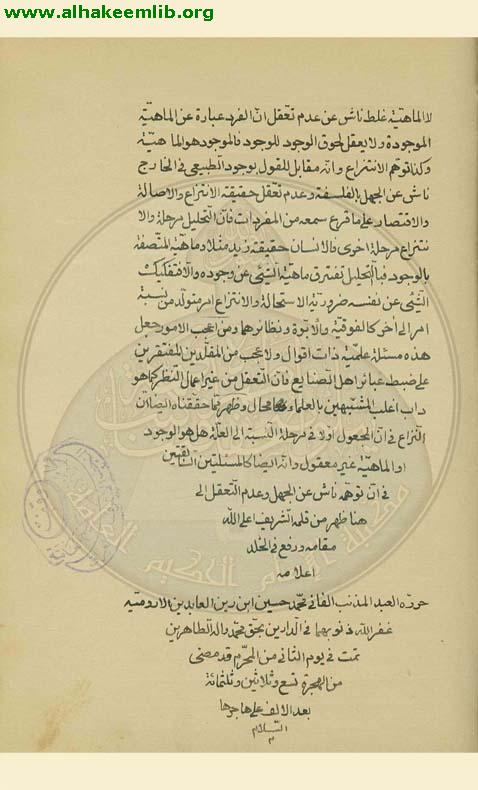 www.alhakeemlib.org
لا الماهيّة غلط ناش عن عدم تعقل انّ الفرد عبارة عن الماهيّة
الموجودة ولا يعقل لحوق الوجود للوجود فالموجود هو الماهيّة
وكذا توهم الانتزاع وانّه مقابل للقول بوجود الطبيعى فى الخارج
ناش عن الجهل بالفلسفة وعدم تعقل حقيقته الانتزاع والاصالة
والاقتصار على ما قرع سمعه من المفردات فانّ التحليل مرحلة والا
نتزاع مرحلة اخرى فالانسان حقيقته زيد مثلا وماهيّته المتصفة
بالوجود فبالتحليل تفترق ماهيّة الشيئ عن وجوده والا فتفكيك
الشيئ عن نفسه ضرورية الاستحالة والانتزاع امر متولد من نسبة
امر الى اخر كالفوقية والابوّة ونظائرهما ومن اعجب الامور جعل
هذه مسئلة علميّة ذات اقوال ولا عجب من المقلّدين المفتقرين
على ضبط عبائر اهل الصنايع فانّ التعقل من غير اعمال النظر كما هو
داب اغلب المشتبهين بالعلماء محال وظهر ممّا حققناه ايضا انّ
النزاع فى انّ المجعول اوّلا فى مرحلة النسبة الى العلّة هل هو الوجود
او الماهيّة غير معقول وانّه ايضا كالمسئلتين السّابقتين
فى انّ توهمه ناش عن الجهل وعدم التعقل الى
هنا ظهر من قلمه الشريف اعلى الله
مقامه ورفع فى الخلد
اعلامه
حرره العبد المذنب الفانى محمّد حسين ابن زين العابدين الارومیّه
غفر الله ذنوبهما فى الدارين بحقّ محمّد واله الطاهرين
تمّت فى يوم الثانى من المحرّم قد مضى
من الهجرة تسع وثلاثين وثلثمائة
بعد الالف على هاجرها
السّلام
م